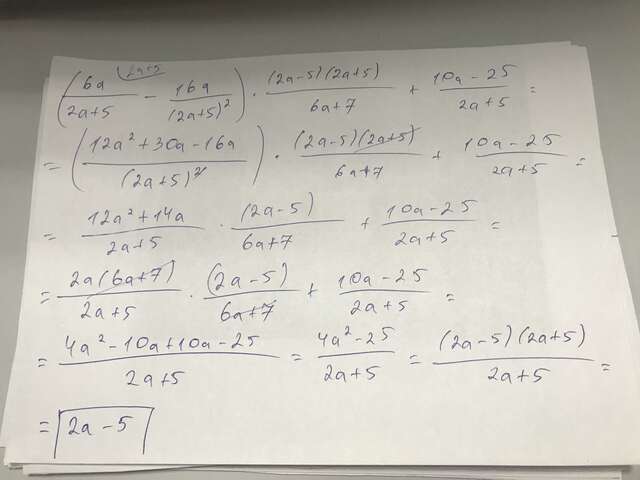 (6a/(2a+5) ⁽²ᵃ⁺⁵ - 16a/(2a+5)²) · (2a-5)(2a+5)/(6a+7) + (10a-25)/(2a+5) =
= ((12a²+30a-16a)/(2a+5)²) · (2a-5)(2a+5)/(6a+7) + (10a-25)/(2a+5) =
= (12a²+14a)/(2a+5) · (2a-5)/(6a+7) + (10a-25)/(2a+5) =
= 2a(6a+7)/(2a+5) · (2a-5)/(6a+7) + (10a-25)/(2a+5) =
= (4a²-10a+10a-25)/(2a+5) = (4a²-25)/(2a+5) = (2a-5)(2a+5)/(2a+5) =
= 2a-5